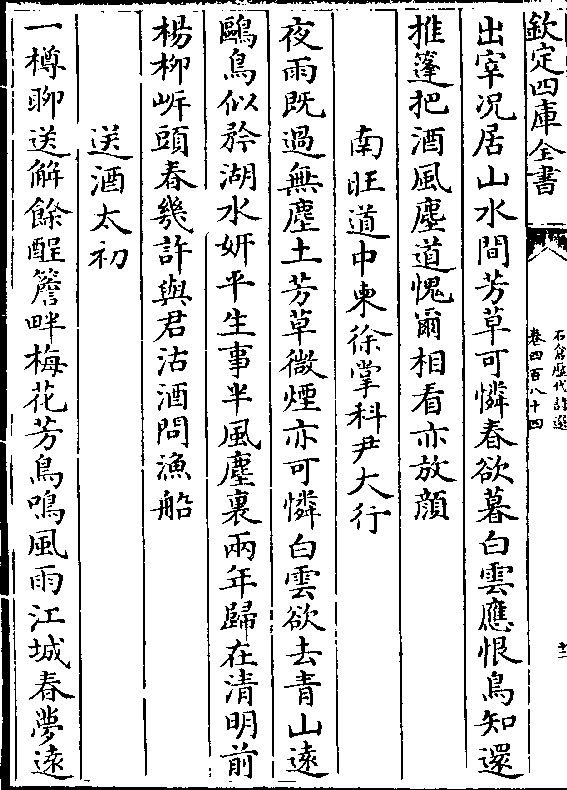 欽定四庫全書
石倉歷代詩選
卷四百八十四
十二
出宰况居山水間芳草可憐春欲暮白雲應恨鳥知還
推篷把酒風塵道愧爾相看亦放顔
南旺道中柬徐掌科尹大行
夜雨既過無塵土芳草微煙亦可憐白雲欲去青山遠
鷗鳥似矜湖水妍平生事半風塵裏兩年歸在清明前
楊柳㟁頭春幾許與君沽酒問漁船
送酒太初
一樽聊送解餘酲簷畔梅花芳鳥鳴風雨江城春夢遠